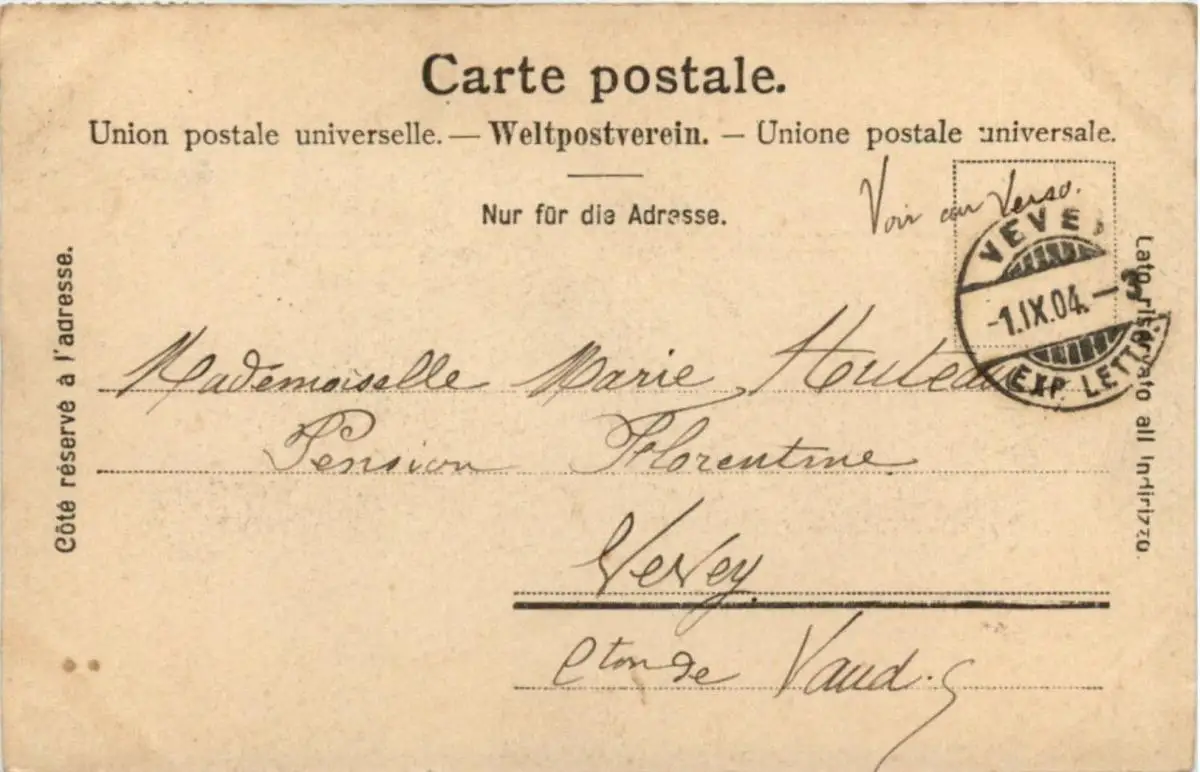 Carte postale.
Union postale universelle. — Weltpostverein. — Unione postale universale.
Nur für die Adresse.
Voir au Verso.
Côté réservé à l'adresse.
Lato riservato all'Indirizzo.
VEVEY
-1.IX.04.-3
EXP. LETTR.
Mademoiselle Marie Huteau
Pension Florentine
Vevey
Cton de Vaud.